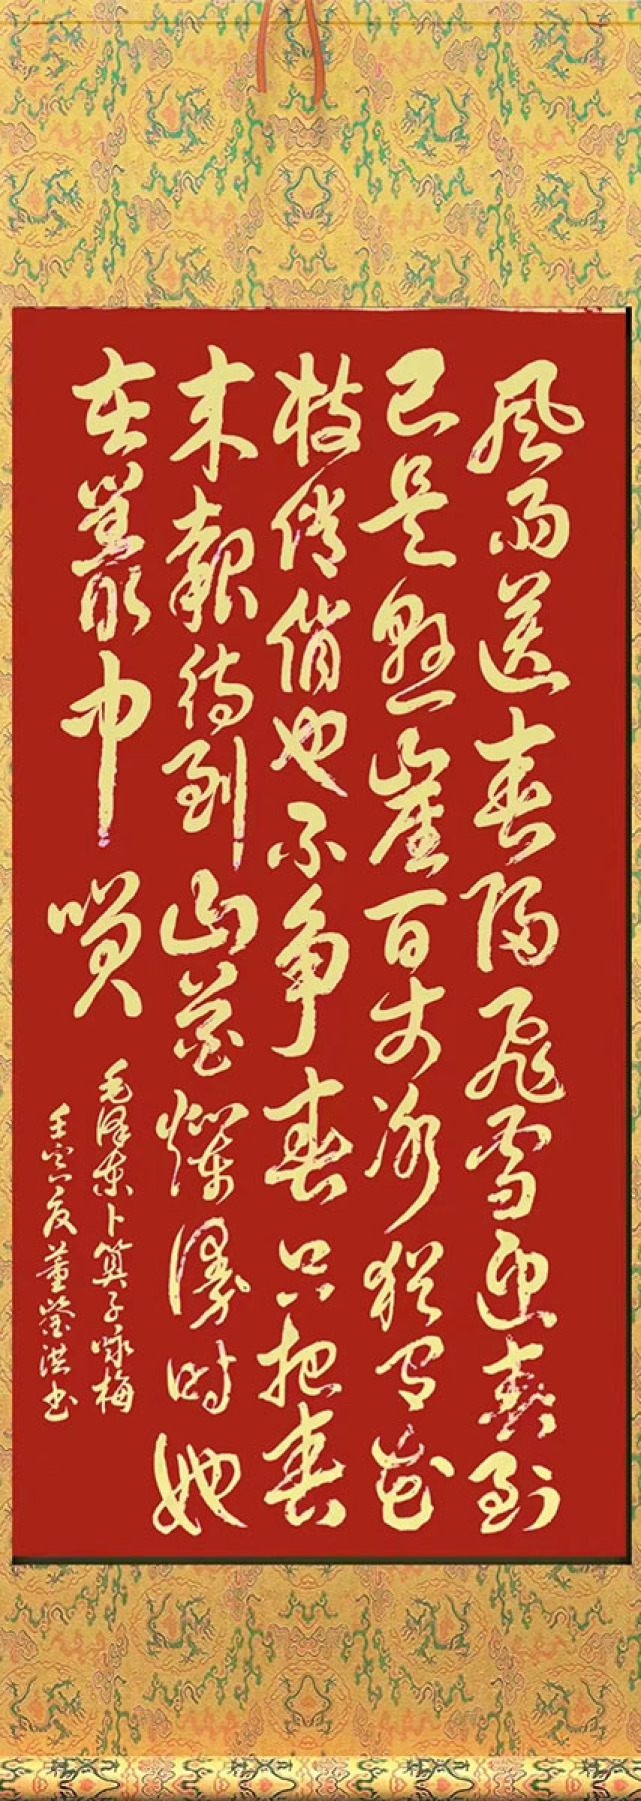 风雨送春归飞雪迎春到
已是悬崖百丈冰犹有花
枝俏俏也不争春只把春
来报待到山花烂漫时她
在丛中笑
毛泽东卜算子咏梅
壬寅夏董莹洪书